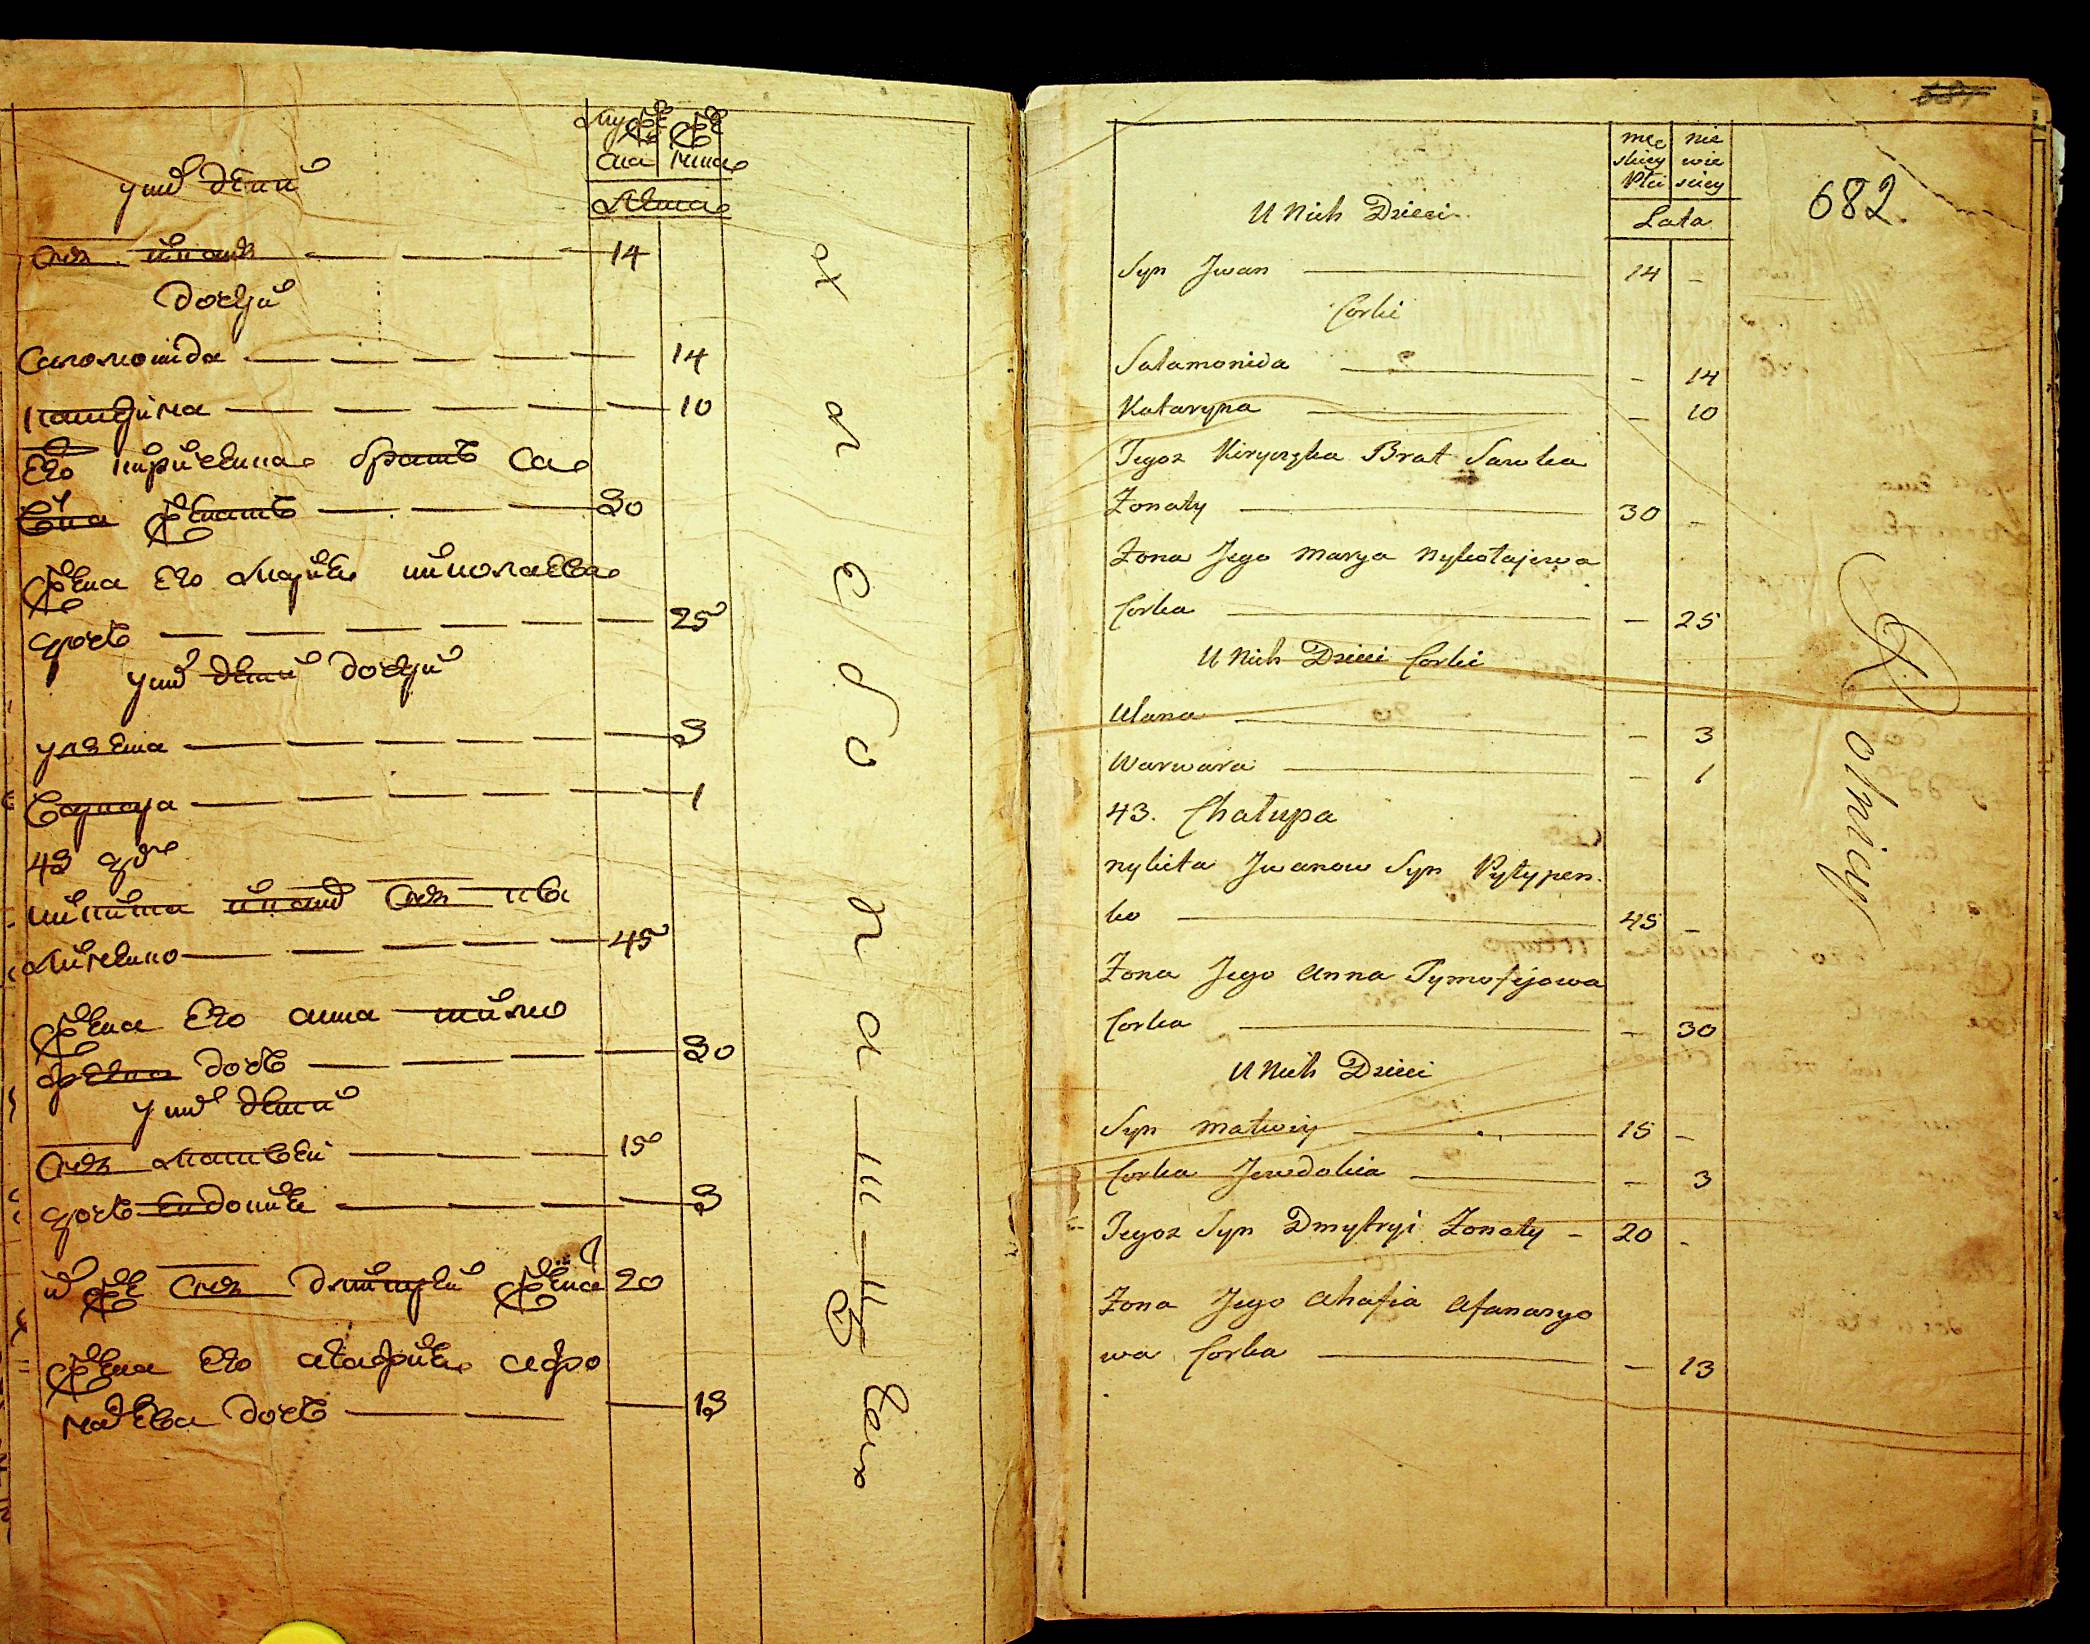 у них дети
снъ иванъ — 14
дочери
Соломонида — 14
катерина — 10
его кириченка братъ са
вка женатъ — 30
жена его мария николаева
дочь — 25
у них дети дочери
уляна — 3
варвара — 1
43 дво
никита иванов снъ
— 45
жена его анна тимо
феева дочь — 30
у них дети
снъ матвей — 15
дочь евдокия — 3
снъ дмитрей женат 20
жена его агафия афо
насева дочь — 13
męskiey płci
niewieściey
Lata
682.
U Nich Dzieci
Syn Jwan — 14 -
Corki
Salamonida — - 14
Kataryna — - 10
Tegoz Kiryczka Brat Sawka
Zonaty — 30 -
Zona Jego Marya Nykołajewa
Corka — - 25
U Nich Dzieci Corki
Ulana — - 3
Warwara — - 1
43. Chałupa
Nykita Jwanow Syn Pyłypen.
ko — 45 -
Zona Jego Anna Tymofijowa
Corka — - 30
U Nich Dzieci
Syn Matwiy — 15 -
Corka Jewdokia — - 3
Tegoz Syn Dmytryi Zonaty - 20 -
Zona Jego Ahafia Afanasyo
wa Corka — - 13
Rolnicy